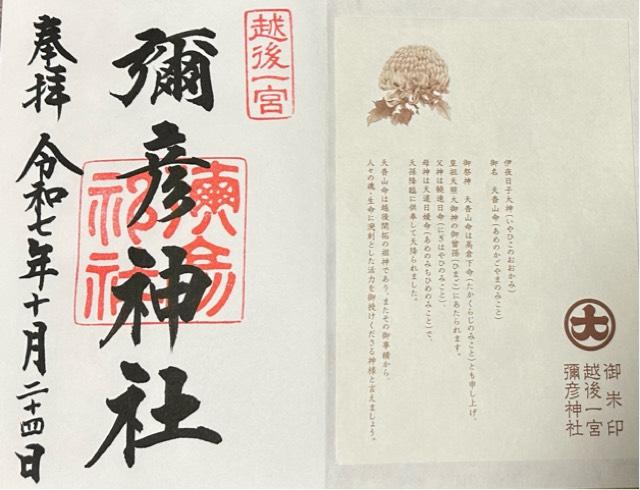 越後一宮
彌彦神社
彌彦
神社
奉拝 令和七年十月二十四日
大
御朱印
越後一宮
彌彦神社
伊夜日子大神(いやひこのおおかみ)
御名 天香山命(あめのかごやまのみこと)
御祭神 天香山命は高倉下命(たかくらじのみこと)とも申し上げ、
皇祖天照大御神の御曾孫(ひまご)にあたられます。
父神は饒速日命(にぎはやひのみこと)、
母神は天道日媛命(あめのみちひめのみこと)で、
天孫降臨に供奉して天降られました。
天香山命は越後開拓の祖神であり、またその御事績から、
人々の魂・生命に溌剌とした活力を御授けくださる神様と言えましょう。